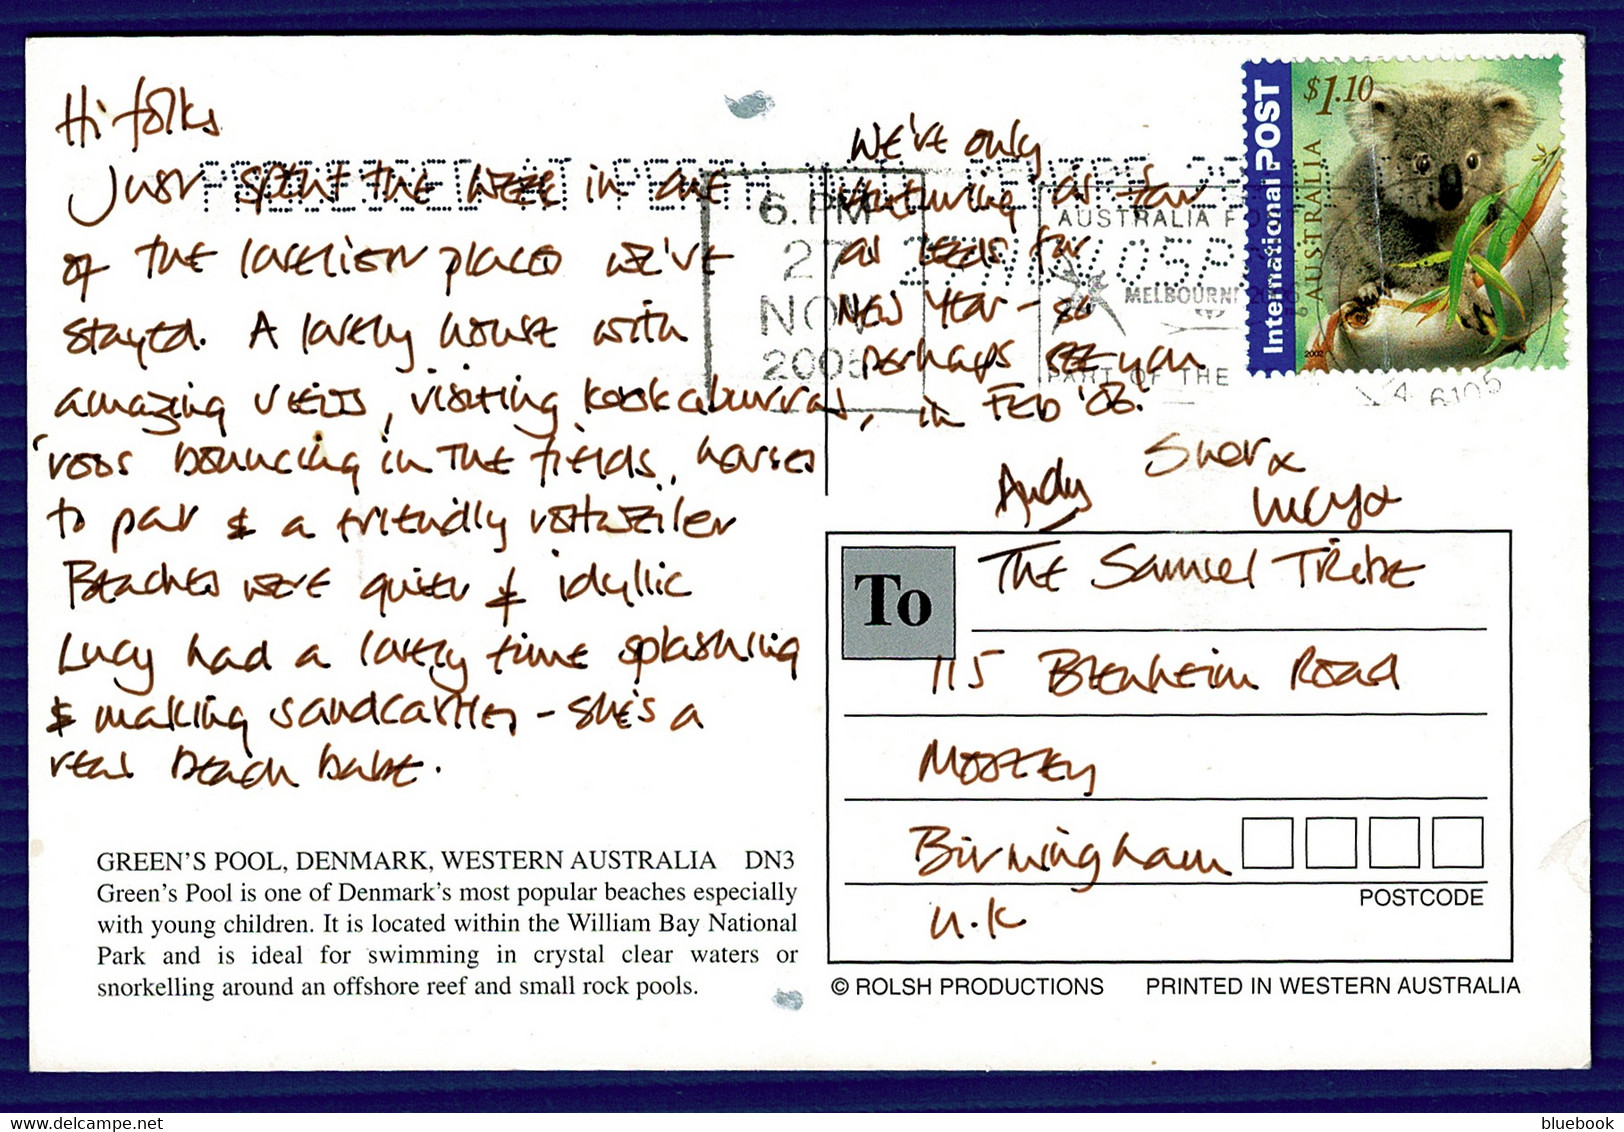 Hi folks
Just spent the week in one
of the lovelier places we've
stayed. A lovely house with
amazing views, visiting kookaburras,
'roos bouncing in the fields, horses
to pat & a friendly rottweiler
Beaches were quiet & idyllic
Lucy had a lovely time splashing
& making sandcastles - she's a
real beach babe.
We've only
venturing as far
as Leeds for
New Year - so
perhaps see you
in Feb '06.
Andy
Sher x
Lucy x
6. PM
27
NOV
2005
27NOV05P
AUSTRALIA
MELBOURNE 2006
PART OF THE
6105
International POST
AUSTRALIA
$1.10
2002
To
The Samuel Tribe
115 Blenheim Road
Moseley
Birmingham
U.K
POSTCODE
GREEN'S POOL, DENMARK, WESTERN AUSTRALIA DN3
Green's Pool is one of Denmark's most popular beaches especially
with young children. It is located within the William Bay National
Park and is ideal for swimming in crystal clear waters or
snorkelling around an offshore reef and small rock pools.
© ROLSH PRODUCTIONS PRINTED IN WESTERN AUSTRALIA
bluebook